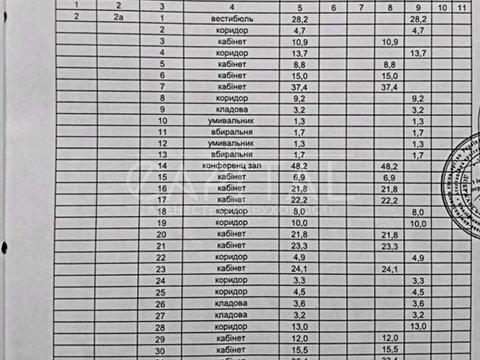 1 2 3 4 5 6 7 8 9 10 11
2 2а 1 вестибюль 28,2 28,2
2 коридор 4,7 4,7
3 кабінет 10,9 10,9
4 коридор 13,7 13,7
5 кабінет 8,8 8,8
6 кабінет 15,0 15,0
7 кабінет 37,4 37,4
8 коридор 9,2 9,2
9 кладова 3,2 3,2
10 умивальник 1,3 1,3
11 вбиральня 1,7 1,7
12 умивальник 1,3 1,3
13 вбиральня 1,7 1,7
14 конференц зал 48,2 48,2
15 кабінет 6,9 6,9
16 кабінет 21,8 21,8
17 кабінет 22,2 22,2
18 коридор 8,0 8,0
19 коридор 10,0 10,0
20 кабінет 21,8 21,8
21 кабінет 23,3 23,3
22 коридор 4,9 4,9
23 кабінет 24,1 24,1
24 коридор 3,3 3,3
25 коридор 4,5 4,5
26 кладова 3,6 3,6
27 кладова 3,2 3,2
28 коридор 13,0 13,0
29 кабінет 12,0 12,0
30 кабінет 15,5 15,5
CAPITAL